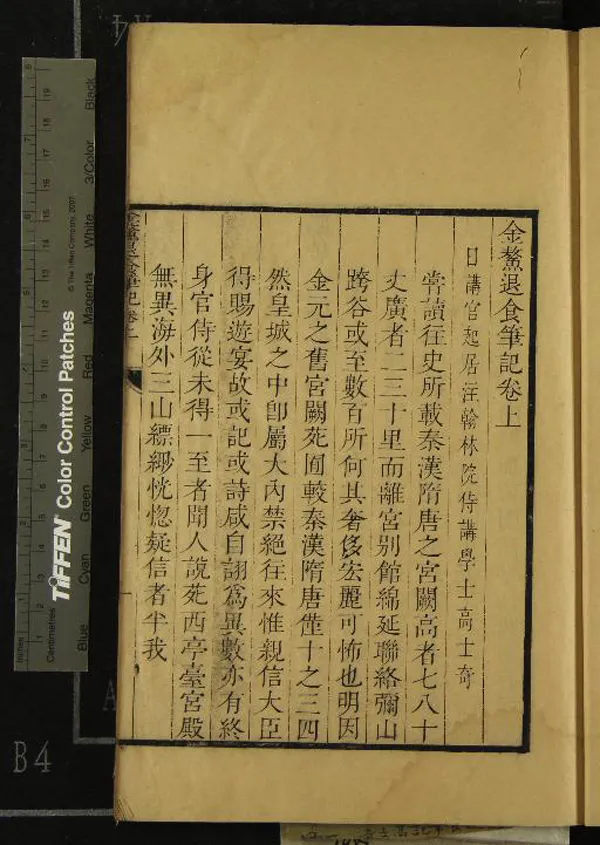 金鰲退食筆記卷上
日講官起居注翰林院侍講學士高士奇
嘗讀往史所載秦漢隋唐之宮闕高者七八十
丈廣者二三十里而離宮别館綿延聯絡彌山
跨谷或至數百所何其奢侈宏麗可怖也明因
金元之舊宮闕苑囿較秦漢隋唐僅十之三四
然皇城之中卽屬大內禁絕往來惟親信大臣
得賜遊宴故或記或詩咸自詡爲異數亦有終
身官侍從未得一至者聞人說苑西亭臺宮殿
無異海外三山縹緲恍惚疑信者半我
金鰲退食筆記卷上
TIFFEN Color Control Patches
© The Tiffen Company, 2007
Inches
Centimetres
Blue Cyan Green Yellow Red Magenta White 3/Color Black
B4